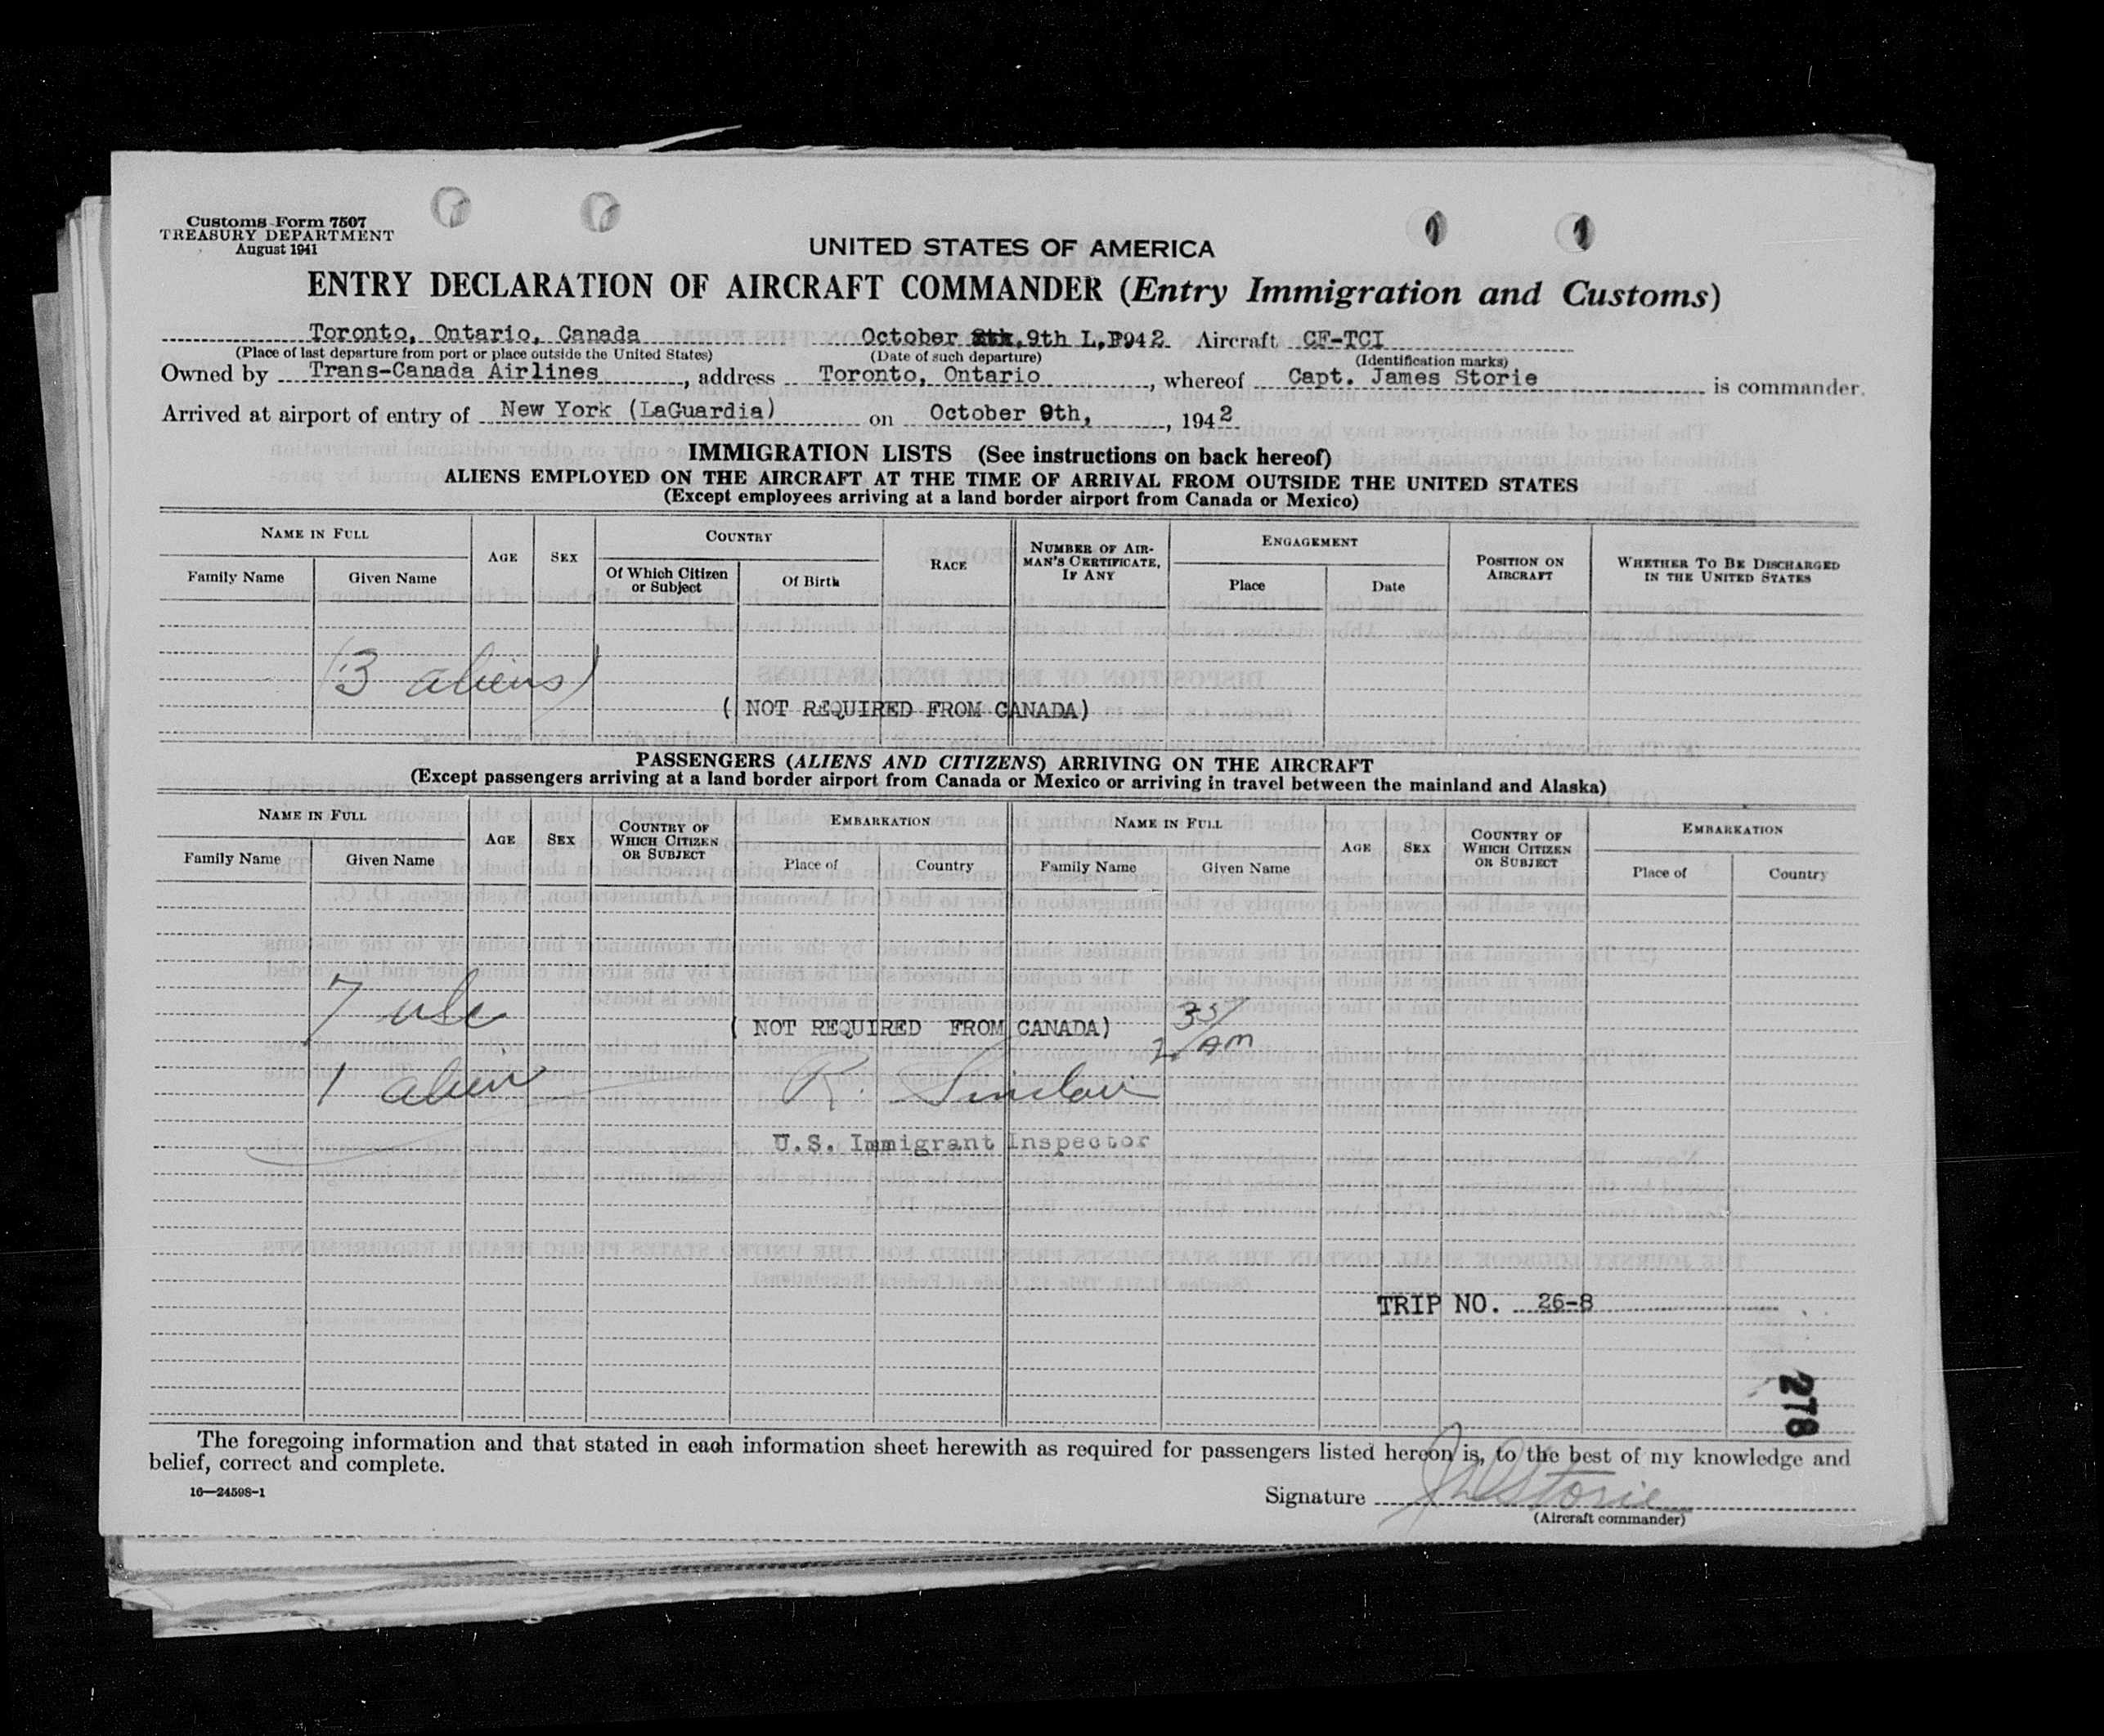 Customs Form 7507
TREASURY DEPARTMENT
August 1941
UNITED STATES OF AMERICA
ENTRY DECLARATION OF AIRCRAFT COMMANDER (Entry Immigration and Customs)
Toronto, Ontario, Canada October 8th, 9th 1942 Aircraft CF-TCI
(Place of last departure from port or place outside the United States) (Date of such departure) (Identification marks)
Owned by Trans-Canada Airlines, address Toronto, Ontario, whereof Capt. James Storie is commander.
Arrived at airport of entry of New York (LaGuardia) on October 9th, 1942
IMMIGRATION LISTS (See instructions on back hereof)
ALIENS EMPLOYED ON THE AIRCRAFT AT THE TIME OF ARRIVAL FROM OUTSIDE THE UNITED STATES
(Except employees arriving at a land border airport from Canada or Mexico)
NAME IN FULL AGE SEX COUNTRY RACE NUMBER OF AIRMAN'S CERTIFICATE, IF ANY ENGAGEMENT POSITION ON AIRCRAFT WHETHER TO BE DISCHARGED IN THE UNITED STATES
Family Name Given Name Of Which Citizen or Subject Of Birth Place Date
(3 aliens)
( NOT REQUIRED FROM CANADA)
PASSENGERS (ALIENS AND CITIZENS) ARRIVING ON THE AIRCRAFT
(Except passengers arriving at a land border airport from Canada or Mexico or arriving in travel between the mainland and Alaska)
NAME IN FULL AGE SEX COUNTRY OF WHICH CITIZEN OR SUBJECT EMBARKATION NAME IN FULL AGE SEX COUNTRY OF WHICH CITIZEN OR SUBJECT EMBARKATION
Family Name Given Name Place of Country Family Name Given Name Place of Country
7 usc
( NOT REQUIRED FROM CANADA)
AM
1 alien R. Sinclair
U.S. Immigrant Inspector
TRIP NO. 26-8
278
The foregoing information and that stated in each information sheet herewith as required for passengers listed hereon is, to the best of my knowledge and
belief, correct and complete.
16—24598-1
Signature Storie
(Aircraft commander)